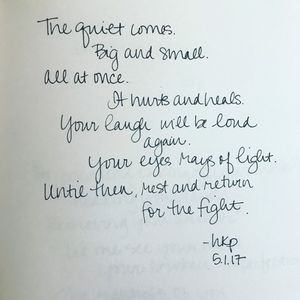 The quiet comes.
Big and small.
All at once.
It hurts and heals.
Your laugh will be loud
again.
Your eyes rays of light.
Until then, rest and return
for the fight.
-hkp
5.1.17